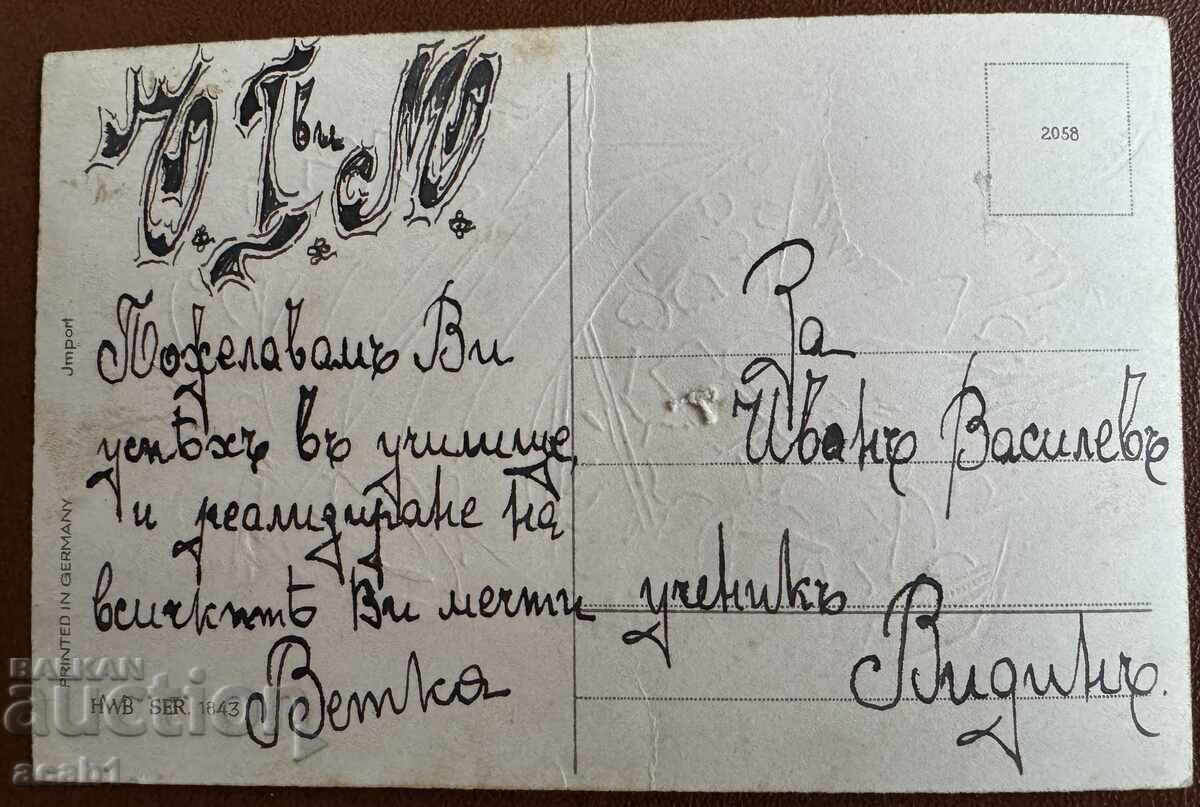 Ч. Т. М.
Ви
Пожелавамъ Ви
успѣхъ въ училище,
и реализиране на
всичкитѣ Ви мечти
Ветка
За
Иванъ Василевъ
ученикъ
Видинъ.
2058
Jmport
PRINTED IN GERMANY
HWB SER. 1843
BALKAN
auction
acab1...